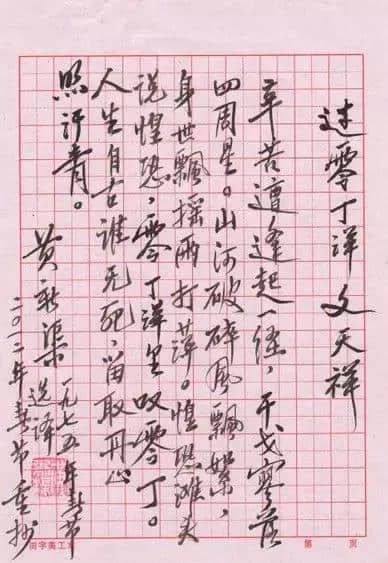 过零丁洋 文天祥
辛苦遭逢起一经，干戈寥落
四周星。山河破碎风飘絮，
身世飘摇雨打萍。惶恐滩头
说惶恐，零丁洋里叹零丁。
人生自古谁无死，留取丹心
照汗青。
黄新渠 选译 一九七五年春节
二〇一二年春节重抄
田字美工
第 页